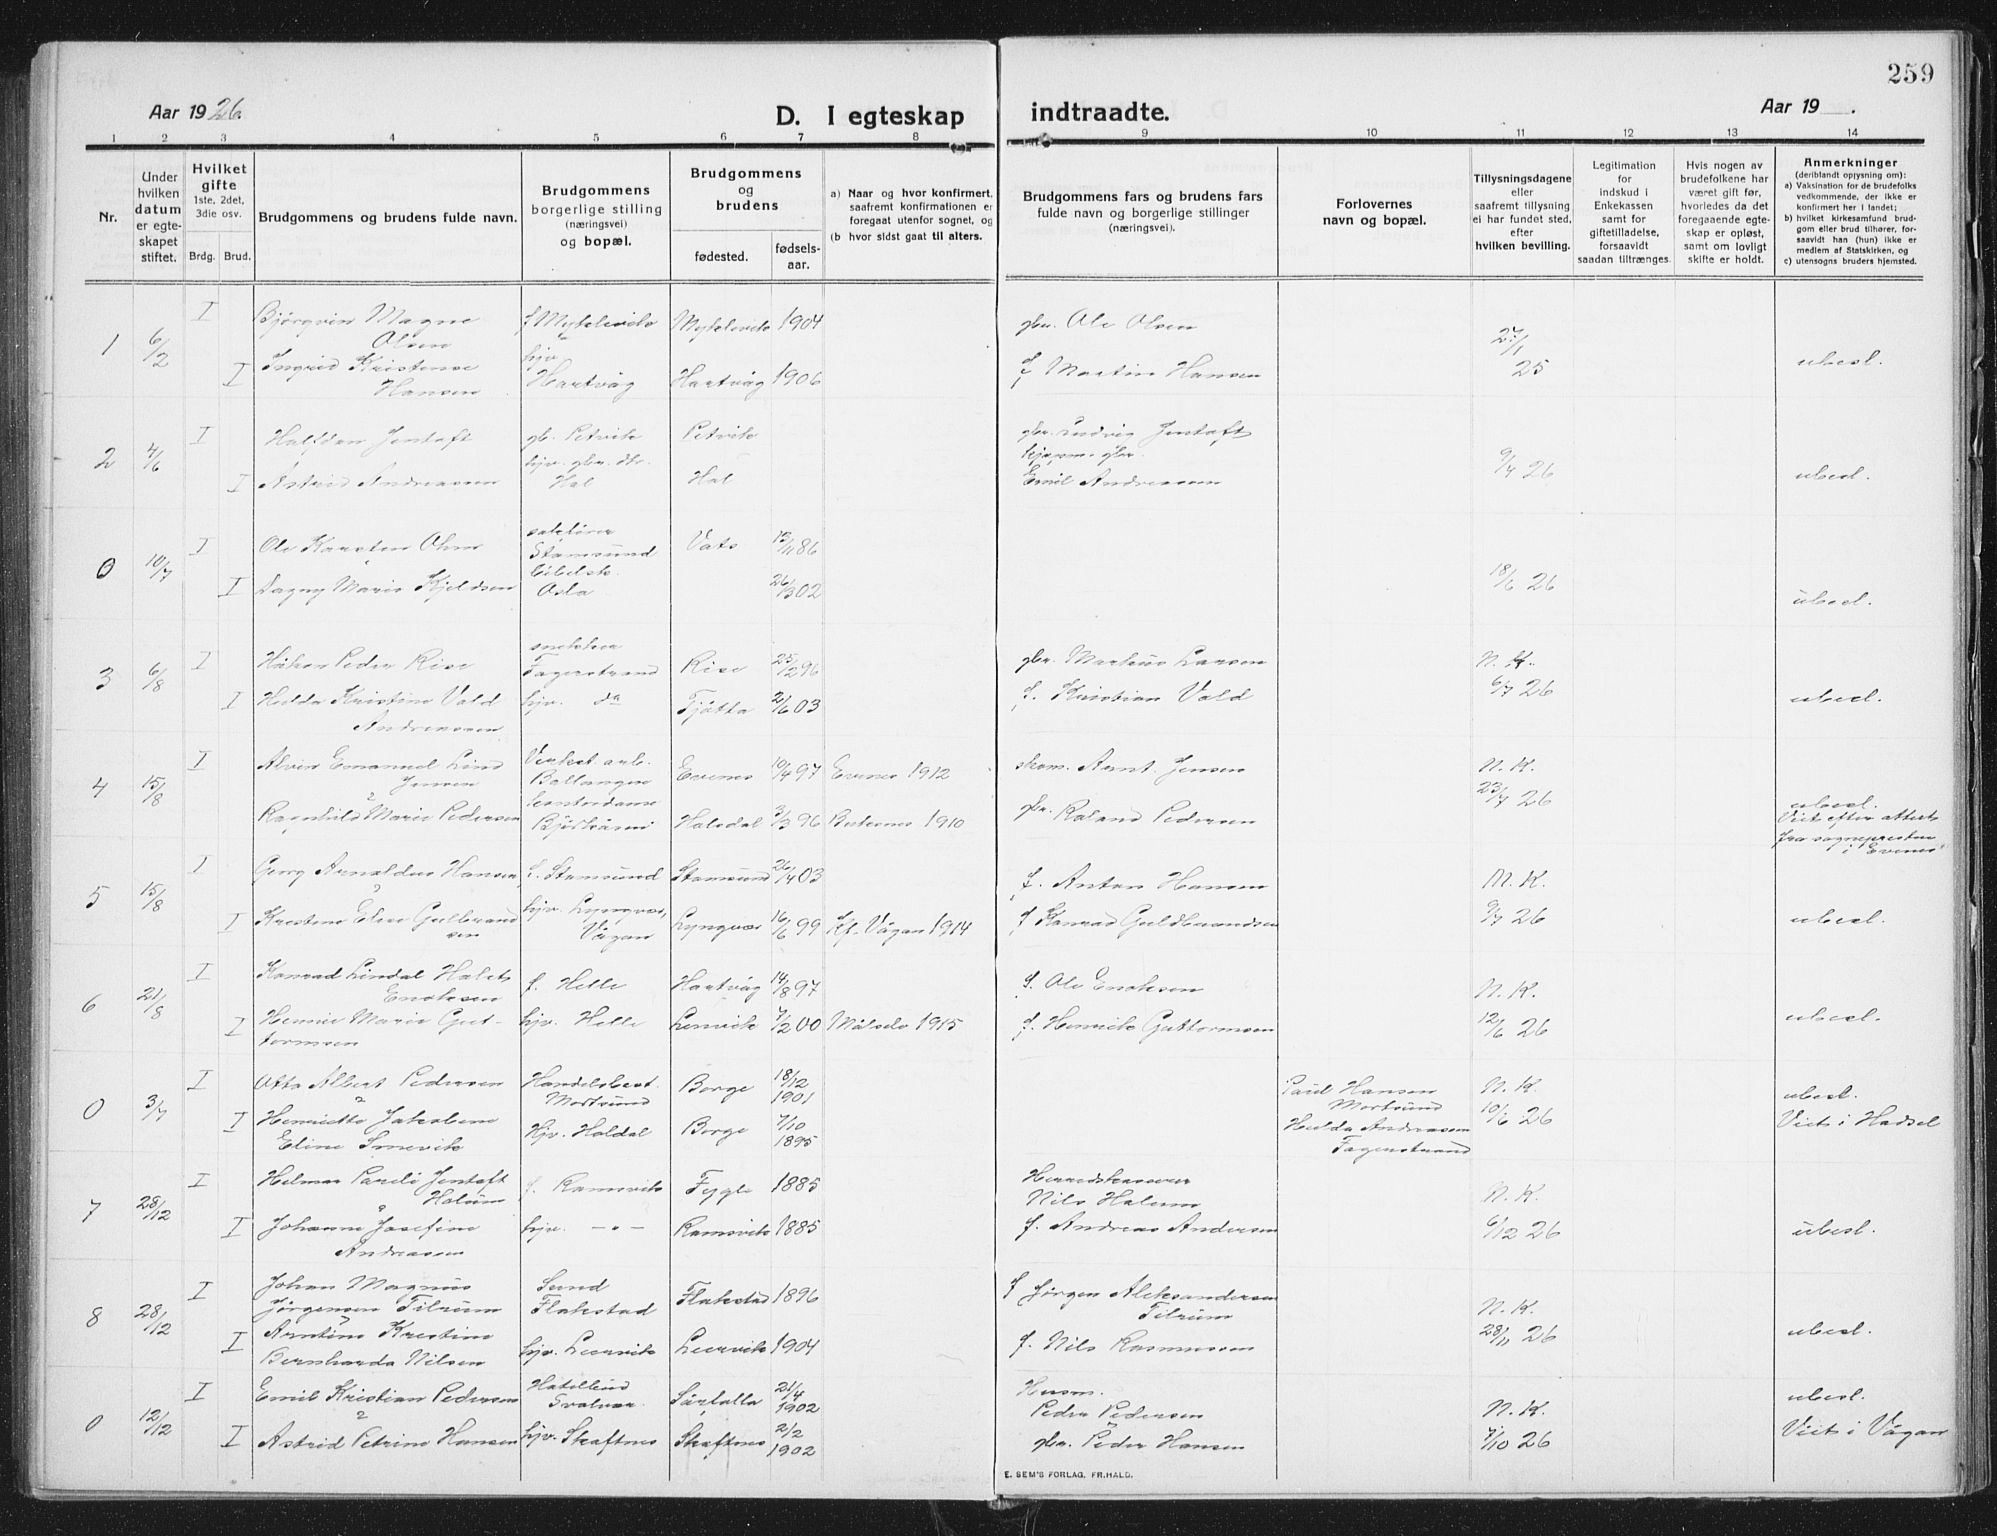 259
Aar 1926.
D. I egteskap indtraadte.
Aar 19 .
1 2 3 4 5 6 7 8 9 10 11 12 13 14
Nr.
Under hvilken datum er egteskapet stiftet.
Hvilket gifte 1ste, 2det, 3die osv.
Brdg. Brud.
Brudgommens og brudens fulde navn.
Brudgommens borgerlige stilling (næringsvei) og bopæl.
Brudgommens og brudens
fødested.
fødselsaar.
a) Naar og hvor konfirmert, saafremt konfirmationen er foregaat utenfor sognet, og
(b hvor sidst gaat til alters.
Brudgommens fars og brudens fars fulde navn og borgerlige stillinger (næringsvei).
Forlovernes navn og bopæl.
Tillysningsdagene eller saafremt tillysning ei har fundet sted, efter hvilken bevilling.
Legitimation for indskud i Enkekassen samt for giftetilladelse, forsaavidt saadan tiltrænges.
Hvis nogen av brudefolkene har været gift før, hvorledes da det foregaaende egteskap er opløst, samt om lovligt skifte er holdt.
Anmerkninger (deriblandt opysning om):
a) Vaksination for de brudefolks vedkommende, der ikke er konfirmert her i landet;
b) hvilket kirkesamfund brudgom eller brud tilhører, forsaavidt han (hun) ikke er medlem av Statskirken, og
c) utensogns bruders hjemsted.
1 6/2 I Bjørgvin Magne Olsen 1904 gbr. Ole Olsen 27/1 25 ubesl.
I Ingrid Kristense Hansen hjv. Hartvåg Hartvåg 1906 f. Martin Hansen
2 4/6 I Halfdan Jentoft gb. Petvik Petvik gbr. Ludvig Jentoft 9/4 26 ubesl.
I Astrid Andreassen hjv. gbr. dtr. Hol Hol Emil Andreassen
0 10/7 I Ole Karsten Stamsund Vats 86 18/6 26 ubesl.
I Dagny Marie Kjeldsen Oslo 26/3 02
3 6/8 I Håkon Peder Rise snekker Fagerstrand Rise 25/2 96 gbr. Markus Larsen N. K. 6/7 26 ubesl.
I Hulda Kristine Vold Andreassen hjv. do Tjøtta 2/6 03 f. Kristian Vold
4 15/8 I Alvin Emanuel Lind Jensen Verkst. arb. Ballangen Evenes 10/4 97 Evenes 1912 skom. Arnt. Jensen N. K. 23/7 26 ubesl.
Ragnhild Marie Pedersen kontordame Bjørkåsen Halsdal 3/3 96 1910 gbr. Roland Pedersen Viet efter attest fra sognepresten i Evenes
5 15/8 I Georg Arnoldus Hansen f. Stamsund Stamsund 26/4 03 f. Anton Hansen N. K. 9/7 26 ubesl.
I Kristine Elise Gulbrandsen hjv. Lyngvær, Vågan Lyngvær 16/6 99 Kf. Vågan 1914 f. Konrad Guldbrandsen
6 21/8 I Konrad Lindal Enoksen f. Helle Hartvåg 14/8 97 f. Ole Enoksen N. K. 12/6 26 ubesl.
I Hennie Marie Guttormsen hjv. Helle Lenvik 7/2 00 Målselv 1915 f. Henrik Guttormsen
0 3/7 I Otto Albert Pedersen Handelsbest. Mortsund Borge 18/12 1901 Paul Hansen Mortsund N. K. 10/6 26 ubesl.
I Henriette Jakobine Eline Smevik Hjv. Holdal Borge 7/10 1895 Hulda Andreassen Fagerstrand Viet i Hadsel
7 28/12 I Helmer Pareli Jentoft Halum f. Ramsvik Fygle 1885 Herredskasserer Nils Halum N. K. 6/12 26 ubesl.
I Johanne Josefine Andreasen hjv. - " - Ramsvik 1885 f. Andreas Andersen
8 28/12 I Johan Magnus Jørgensen Tilrum Sund Flakstad Flakstad 1896 f. Jørgen Aleksandersen Tilrum N. K. 28/11 26 ubesl.
I Arntine Kristine Bernharda Nilsen hjv. Leirvik Leirvik 1904 f. Nils Rasmussen
0 12/12 I Emil Kristian Pedersen Svolvær 21/4 1902 Husm. Peder Pedersen N. K. 7/10 26 ubesl.
I Astrid Petrine Hansen hjv. Skaftnes Skaftnes 2/2 1902 gbr. Peder Hansen Viet i Vågan
E. SEM'S FORLAG, FR.HALD.